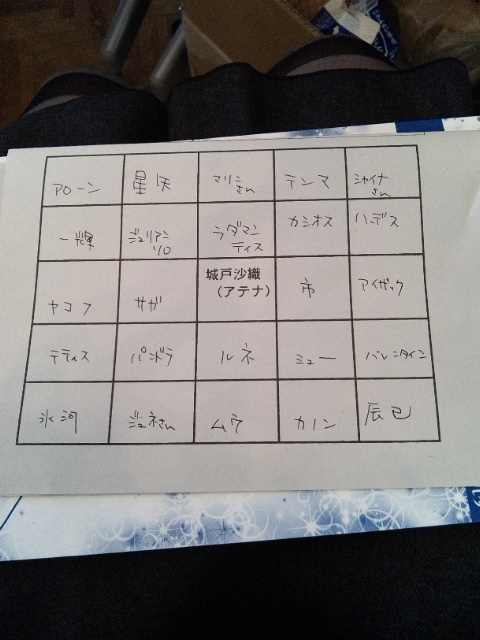 アローン
星矢
マリン
さん
テンマ
シャイナ
さん
一輝
ジュリアン
ソロ
ラダマン
ティス
カシオス
ハーデス
ヤコフ
サガ
城戸沙織
（アテナ）
市
アイザック
テティス
パンドラ
ルネ
ミュー
バレンタイン
氷河
ジュネさん
ムウ
カノン
辰巳